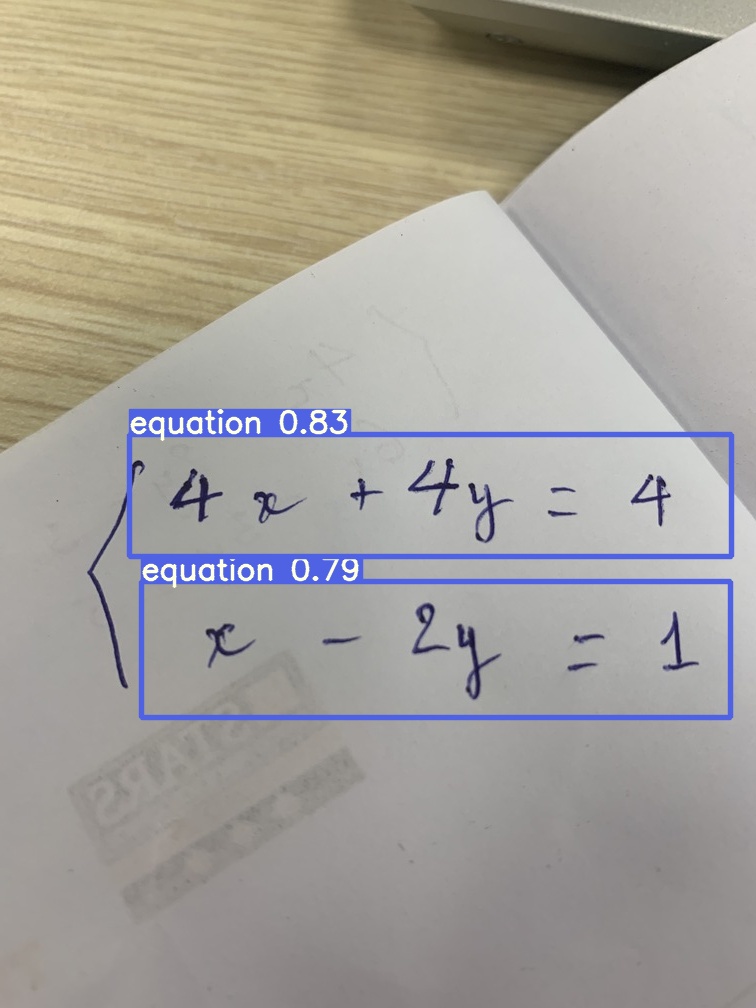 equation 0.83
4x + 4y = 4
equation 0.79
x - 2y = 1
STARS